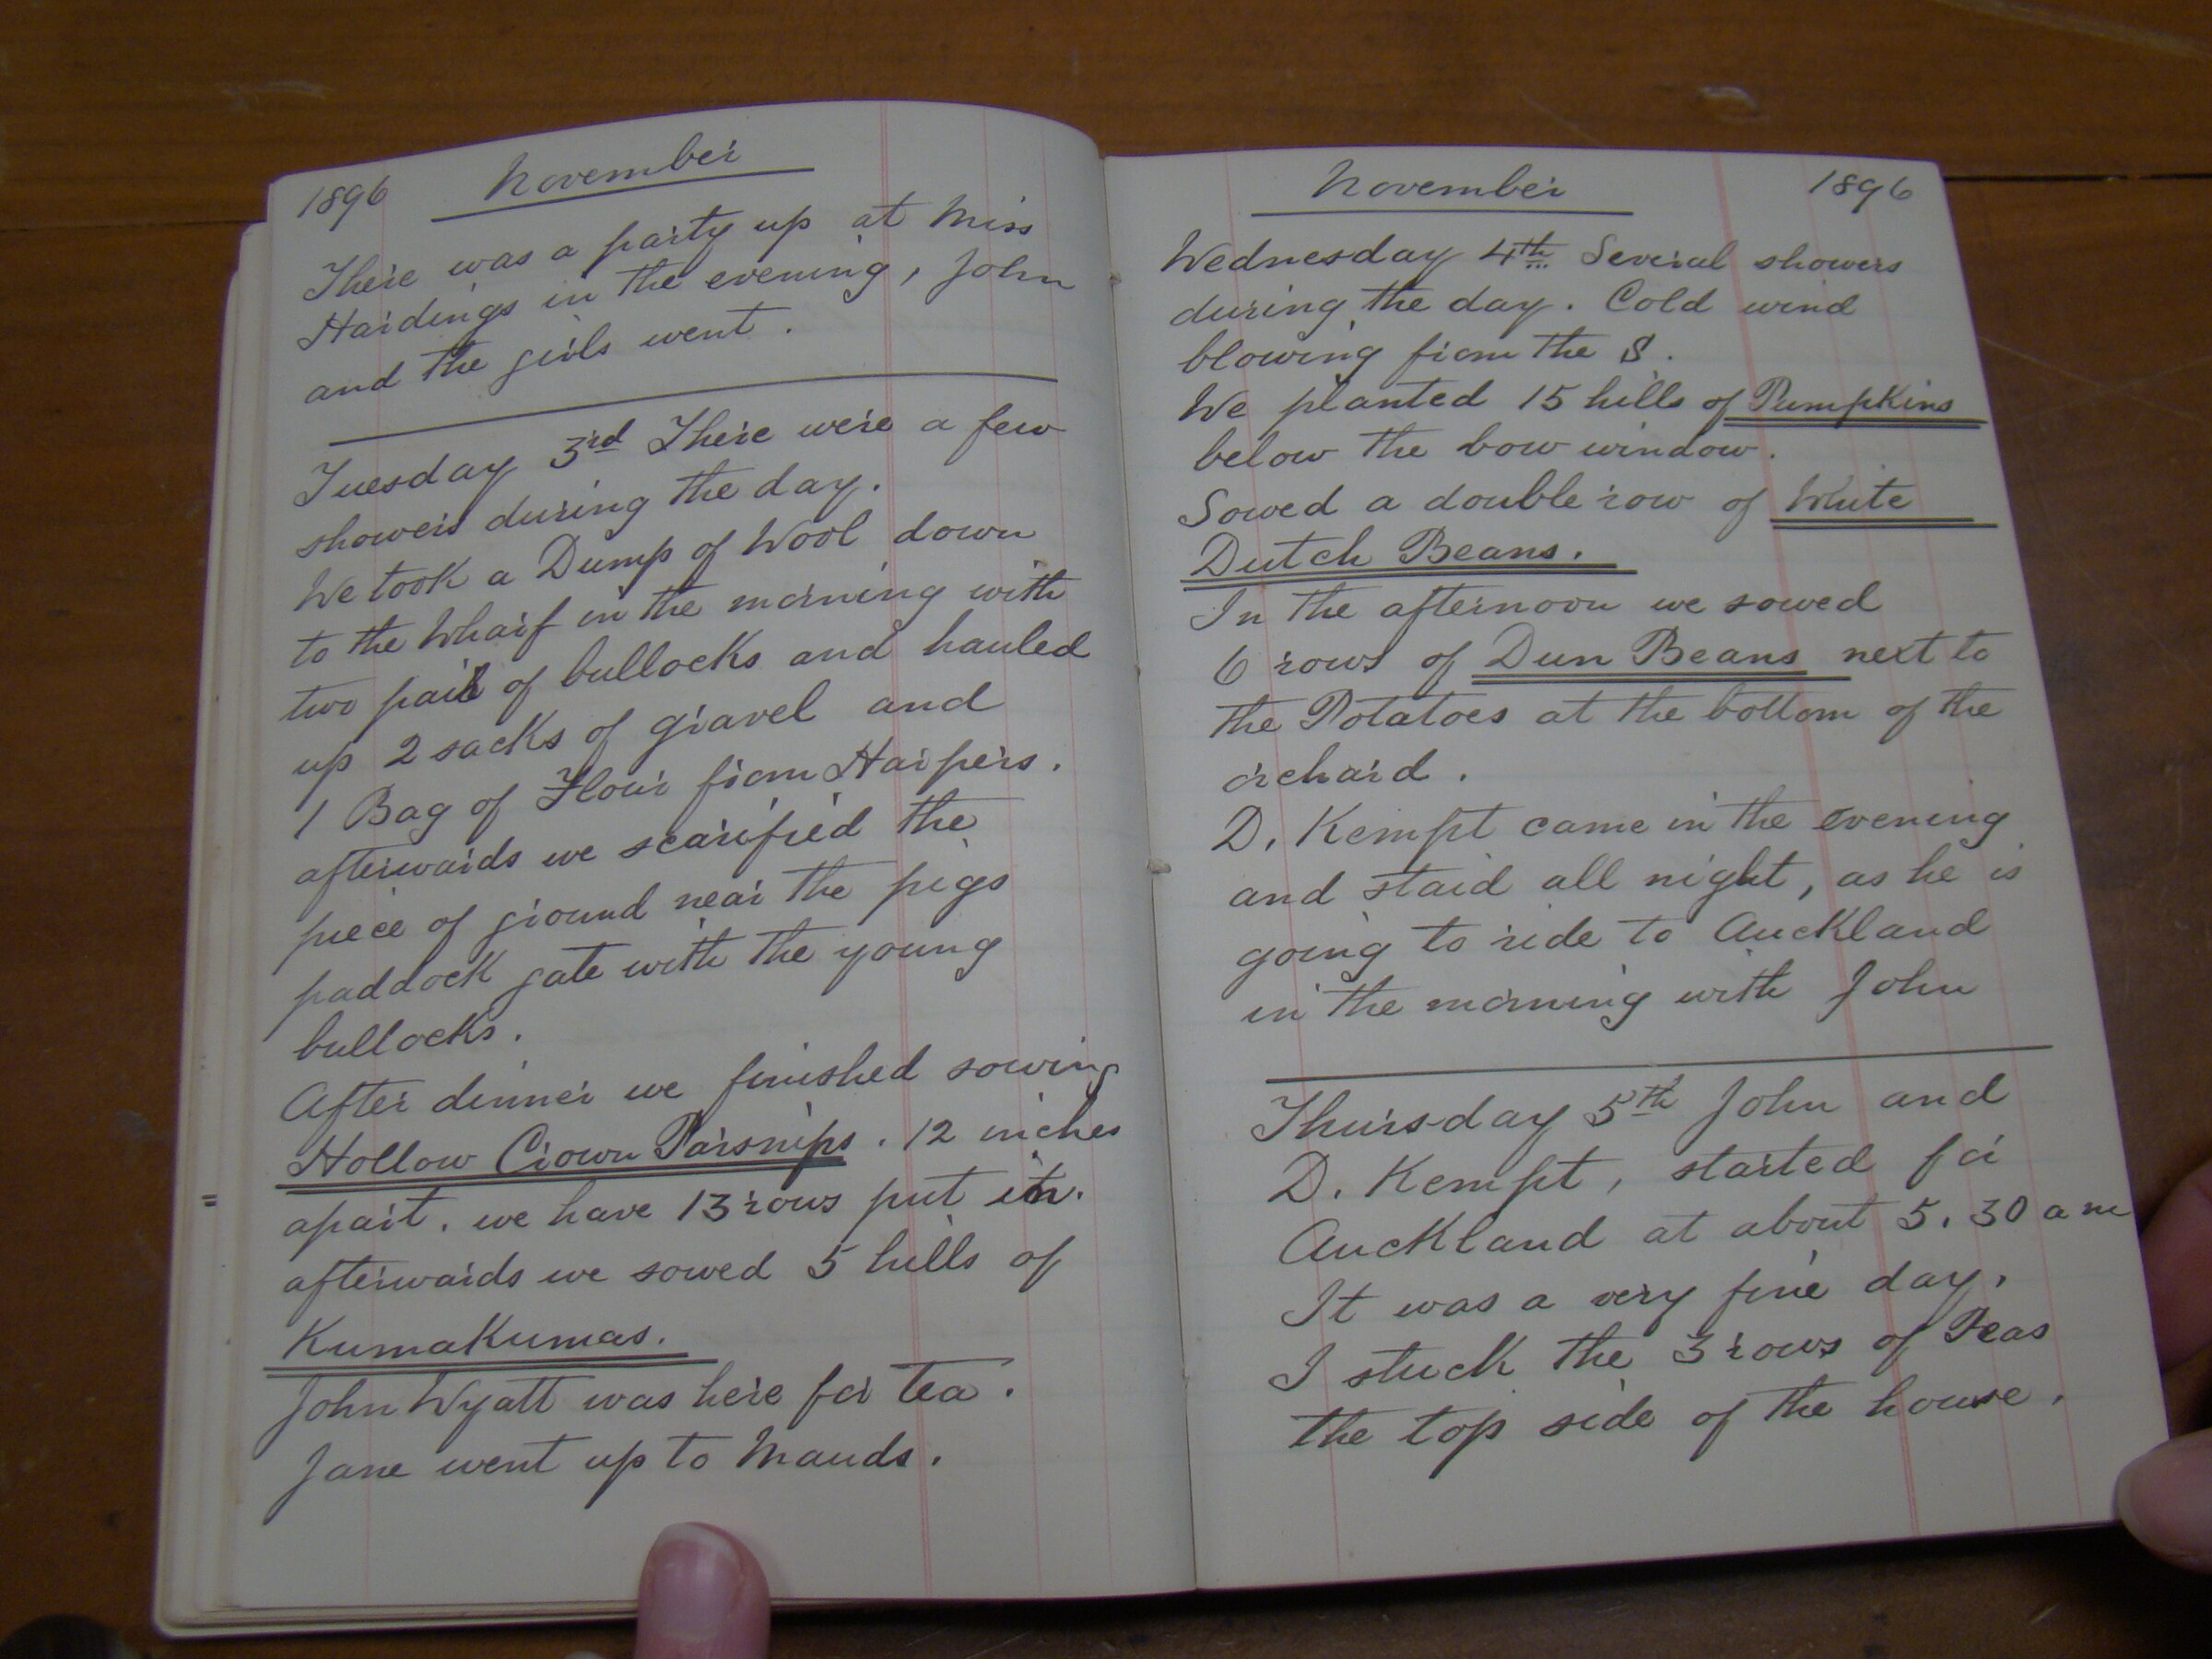 1896 November
There was a party up at Miss
Hardings in the evening, John
and the girls went.
Tuesday 3rd There were a few
showers during the day.
We took a Dump of Wool down
to the Wharf in the morning with
two pair of bullocks and hauled
up 2 sacks of gravel and
1 Bag of Flour from Harpers.
afterwards we scarified the
piece of ground near the pigs
paddock gate with the young
bullocks.
After dinner we finished sowing
Hollow Crown Parsnips. 12 inches
apart. we have 13 rows put in.
afterwards we sowed 5 hills of
KumaKumas.
John Wyatt was here for tea.
Jane went up to Mauds.
November 1896
Wednesday 4th Several showers
during the day. Cold wind
blowing from the S.
We planted 15 hills of Pumpkins
below the bow window.
Sowed a double row of White
Dutch Beans.
In the afternoon we sowed
6 rows of Dun Beans next to
the Potatoes at the bottom of the
orchard.
D. Kempt came in the evening
and staid all night, as he is
going to ride to Auckland
in the morning with John
Thursday 5th John and
D. Kempt, started for
Auckland at about 5.30 am
It was a very fine day.
I stuck the 3 rows of Peas
the top side of the house.